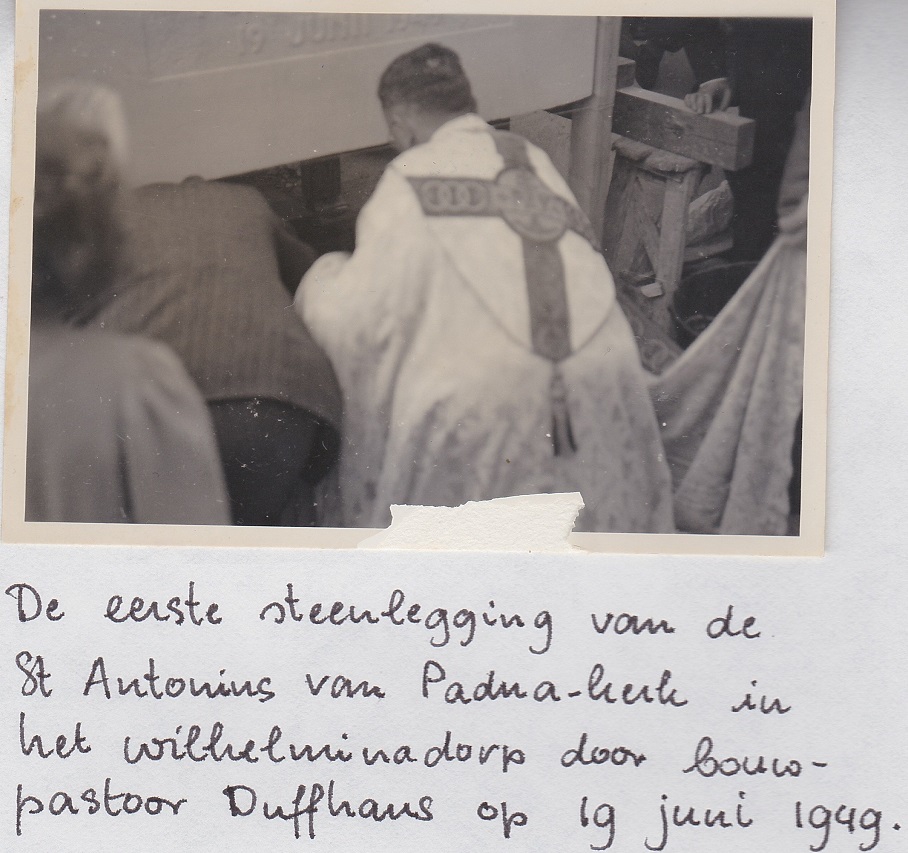 19 JUNI 1949
De eerste steenlegging van de
St Antonius van Padua-kerk in
het wilhelminadorp door bouw-
pastoor Duffhaus op 19 juni 1949.